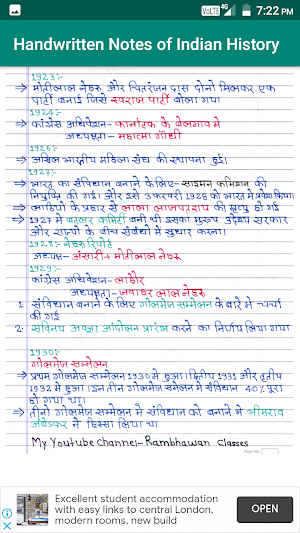 VoLTE 4G 7:22 PM
Handwritten Notes of Indian History
1923:-
⇒ मोतीलाल नेहरू और चितरंजन दास दोनो मिलकर एक
पार्टी बनाई जिसे स्वराज पार्टी बोला गया
1924:-
⇒ कांग्रेस अधिवेशन- कर्नाटक के बेलगाव मे
अध्यक्षता- महात्मा गाँधी
1926:-
⇒ अखिल भारतीय महिला संघ की स्थापना हुई।
1927:-
⇒ भारत का संविधान बनाने के लिए- साइमन कमिशन की
नियुक्ति की गई। और इसे 3 फरवरी 1928 को भारत मे प्रवेश किया।
⇒ लाठियो के प्रहार से लाला लाजपतराय की मृत्यु हो गई
⇒ 1927 मे बटलर कमिटी बनी थी इसका मुख्य उद्देश्य सरकार
और राज्यो के बीच संबंधो मे सुधार करना।
1928:- नेहरू रिपोर्ट
अध्यक्ष- अंसारी + मोतीलाल नेहरू
1929:-
कांग्रेस अधिवेशन- लाहौर
अध्यक्षता- जवाहर लाल नेहरू
1. संविधान बनाने के लिए गोलमेज सम्मेलन के बारे मे चर्चा
की गई
2. सविनय अवज्ञा आंदोलन प्रारंभ करने का निर्णय लिया गया
1930:-
गोलमेज सम्मेलन
⇒ प्रथम गोलमेज सम्मेलन 1930 मे हुआ। द्वितीय 1931 और तृतीय
1932 मे हुआ। इन तीन गोलमेज सम्मेलन मे संविधान 40% पूरा
हो गया था।
⇒ तीनो गोलमेज सम्मेलन मे संविधान को बनाने मे भीमराव
अंबेडकर ने हिस्सा लिया था
My Youtube channel- Rambhawan Classes
Page No.
Excellent student accommodation
with easy links to central London,
modern rooms, new build
OPEN